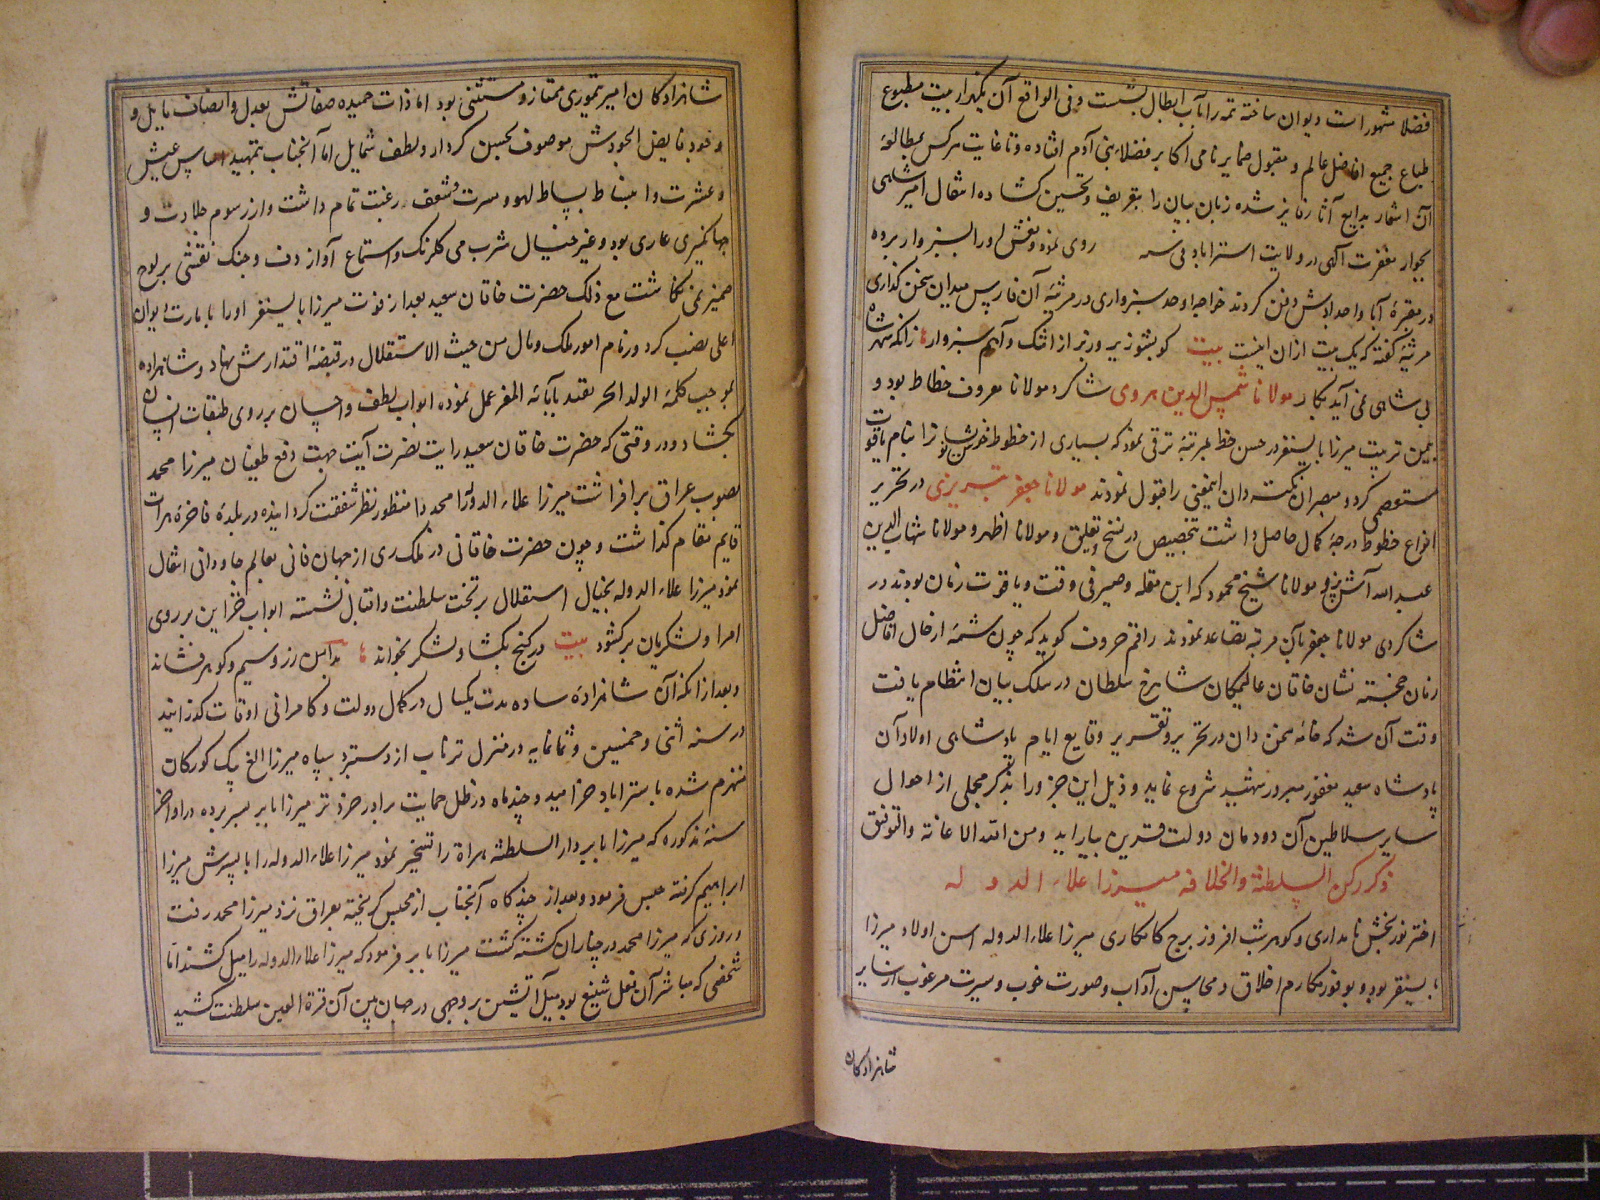 فضلا مشهور است دیوان ساخته تمه را بآب ابطال بشست و فی الواقع آن یکهزار بیت مطبوع
طباع جمیع افاضل عالم و مقبول ضمایر نامی اکابر فضلاء بنی آدم افتاده و تا غایت هرکس بمطالعهٔ
آن اشعار بدایع آثار فایز شده زبان بیان را بتعریف و تحسین گشاده انتقال امیر شاهی
بجوار مغفرت الهی در ولایت استراباد فی سنه روی نموده و نعش او را بسبزوار برده
در مقبرهٔ آبا و اجدادش دفن کردند خواجه اوحد سبزواری در مرثیهٔ آن فارس میدان سخن گذاری
مرثیه گفته که یک بیت از آن اینست بیت کو بشو زیر و زبر از اشک و آهم سبزوار زانکه شهر شاه
بی شاهی نمی آید بکار مولانا شمس الدین هروی شاکرد مولانا معروف خطاط بود و
بیمن تربیت میرزا بایسنغر در حسن خط بمرتبهٔ ترقی نمود که بسیاری از خطوط خویش را بنام یاقوت
مستعصمی کرد و مبصران نکته دان اینمعنی را قبول نمودند مولانا جعفر تبریزی در تحریر
انواع خطوط درجهٔ کمال حاصل داشت بتخصیص در نسخ و تعلیق و مولانا اظهر و مولانا شهاب الدین
عبد الله آشپز و مولانا شیخ محمود که ابن مقله و صیرفی وقت و یاقوت زمان بودند در
شاکردی مولانا جعفر بآن مرتبه تصاعد نمودند راقم حروف کوید که چون شمهٔ از حال افاضل
زمان خجسته نشان خاقان عالیمکان شاهرخ سلطان در سلک بیان انتظام یافت
وقت آن شد که خامهٔ سخن دان در تحریر و تقریر وقایع ایام پادشاهی اولاد آن
پادشاه سعید مغفور مبرور شروع نماید و ذیل این جزو را بذکر مجملی از احوال
سایر سلاطین آن دودمان دولت قرین بیاراید ومن الله الاعانة والتوفیق
ذکر رکن السلطنة والخلافه میرزا علاء الدوله
اختر نور بخش نامداری و کوهر شب افروز برج کامکاری میرزا علاء الدوله اسن اولاد میرزا
بایسنغر بود و بوفور مکارم اخلاق و محاسن آداب و صورت خوب و سیرت مرغوب از سایر
شاهزادکان
شاهزادکان امیر تیموری ممتاز و مستثنی بود اما ذات حمیده صفاتش بعدل و انصاف مایل و
وجود فایض الجودش موصوف بحسن کردار و لطف شمایل اما آنجناب بتمهید اساس عیش
و عشرت و انبساط بساط لهو و مسرت شعف و رغبت تمام داشت و از رسوم جلادت و
جهانکیری عاری بود و غیر خیال شرب می کلرنک و استماع آواز دف و چنک نقشی بر لوح
ضمیر نمی نکاشت مع ذلک حضرت خاقان سعید بعد از فوت میرزا بایسنغر او را بامارت دیوان
اعلی نصب کرد و زمام امور ملک و مال من حیث الاستقلال در قبضهٔ اقتدارش نهاد و شاهزاده
بموجب کلمهٔ الولد الحر یقتد بآبائه الغر عمل نموده ابواب لطف و احسان بر روی طبقات انسان
بکشاد و در وقتی که حضرت خاقان سعید رایت نصرت آیت جهت دفع طغیان میرزا محمد
بصوب عراق برافراشت میرزا علاء الدوله را منظور نظر شفقت کردانیده در بلدهٔ فاخرهٔ هرات
قایم مقام کذاشت و چون حضرت خاقانی در ملک ری از جهان فانی بعالم جاودانی انتقال
نمود میرزا علاء الدوله بخیال استقلال بر تخت سلطنت و اقبال نشسته ابواب خزاین بر روی
امرا و لشکریان برکشود بیت در کنج بکشاد و لشکر بخواند بدامن زر و سیم و کوهر فشاند
و بعد از آنکه آن شاهزادهٔ ساده مدت یکسال در کمال دولت و کامرانی اوقات کذرانید
در سنه اثنی و خمسین و ثمانمایه در منزل ترناب از دستبرد سپاه میرزا الغ بیک کورکان
منهزم شده باستراباد خرامید و چند ماه در ظل حمایت برادر خردتر میرزا بابر بسر برده در اواخر
سنهٔ مذکوره که میرزا بابر دار السلطنه هراة را تسخیر نمود میرزا علاء الدوله را با پسرش میرزا
ابراهیم کرفته حبس فرمود و بعد از چندکاه آنجناب از محبس کریخته بعراق نزد میرزا محمد رفت
و روزی که میرزا محمد در چناران کشته کشت میرزا بابر فرمود که میرزا علاء الدوله را میل کشند اما
شخصی که مباشر آن فعل شنیع بود میل آتشین بر وجهی در جهان بین آن قرة العین سلطنت کشید